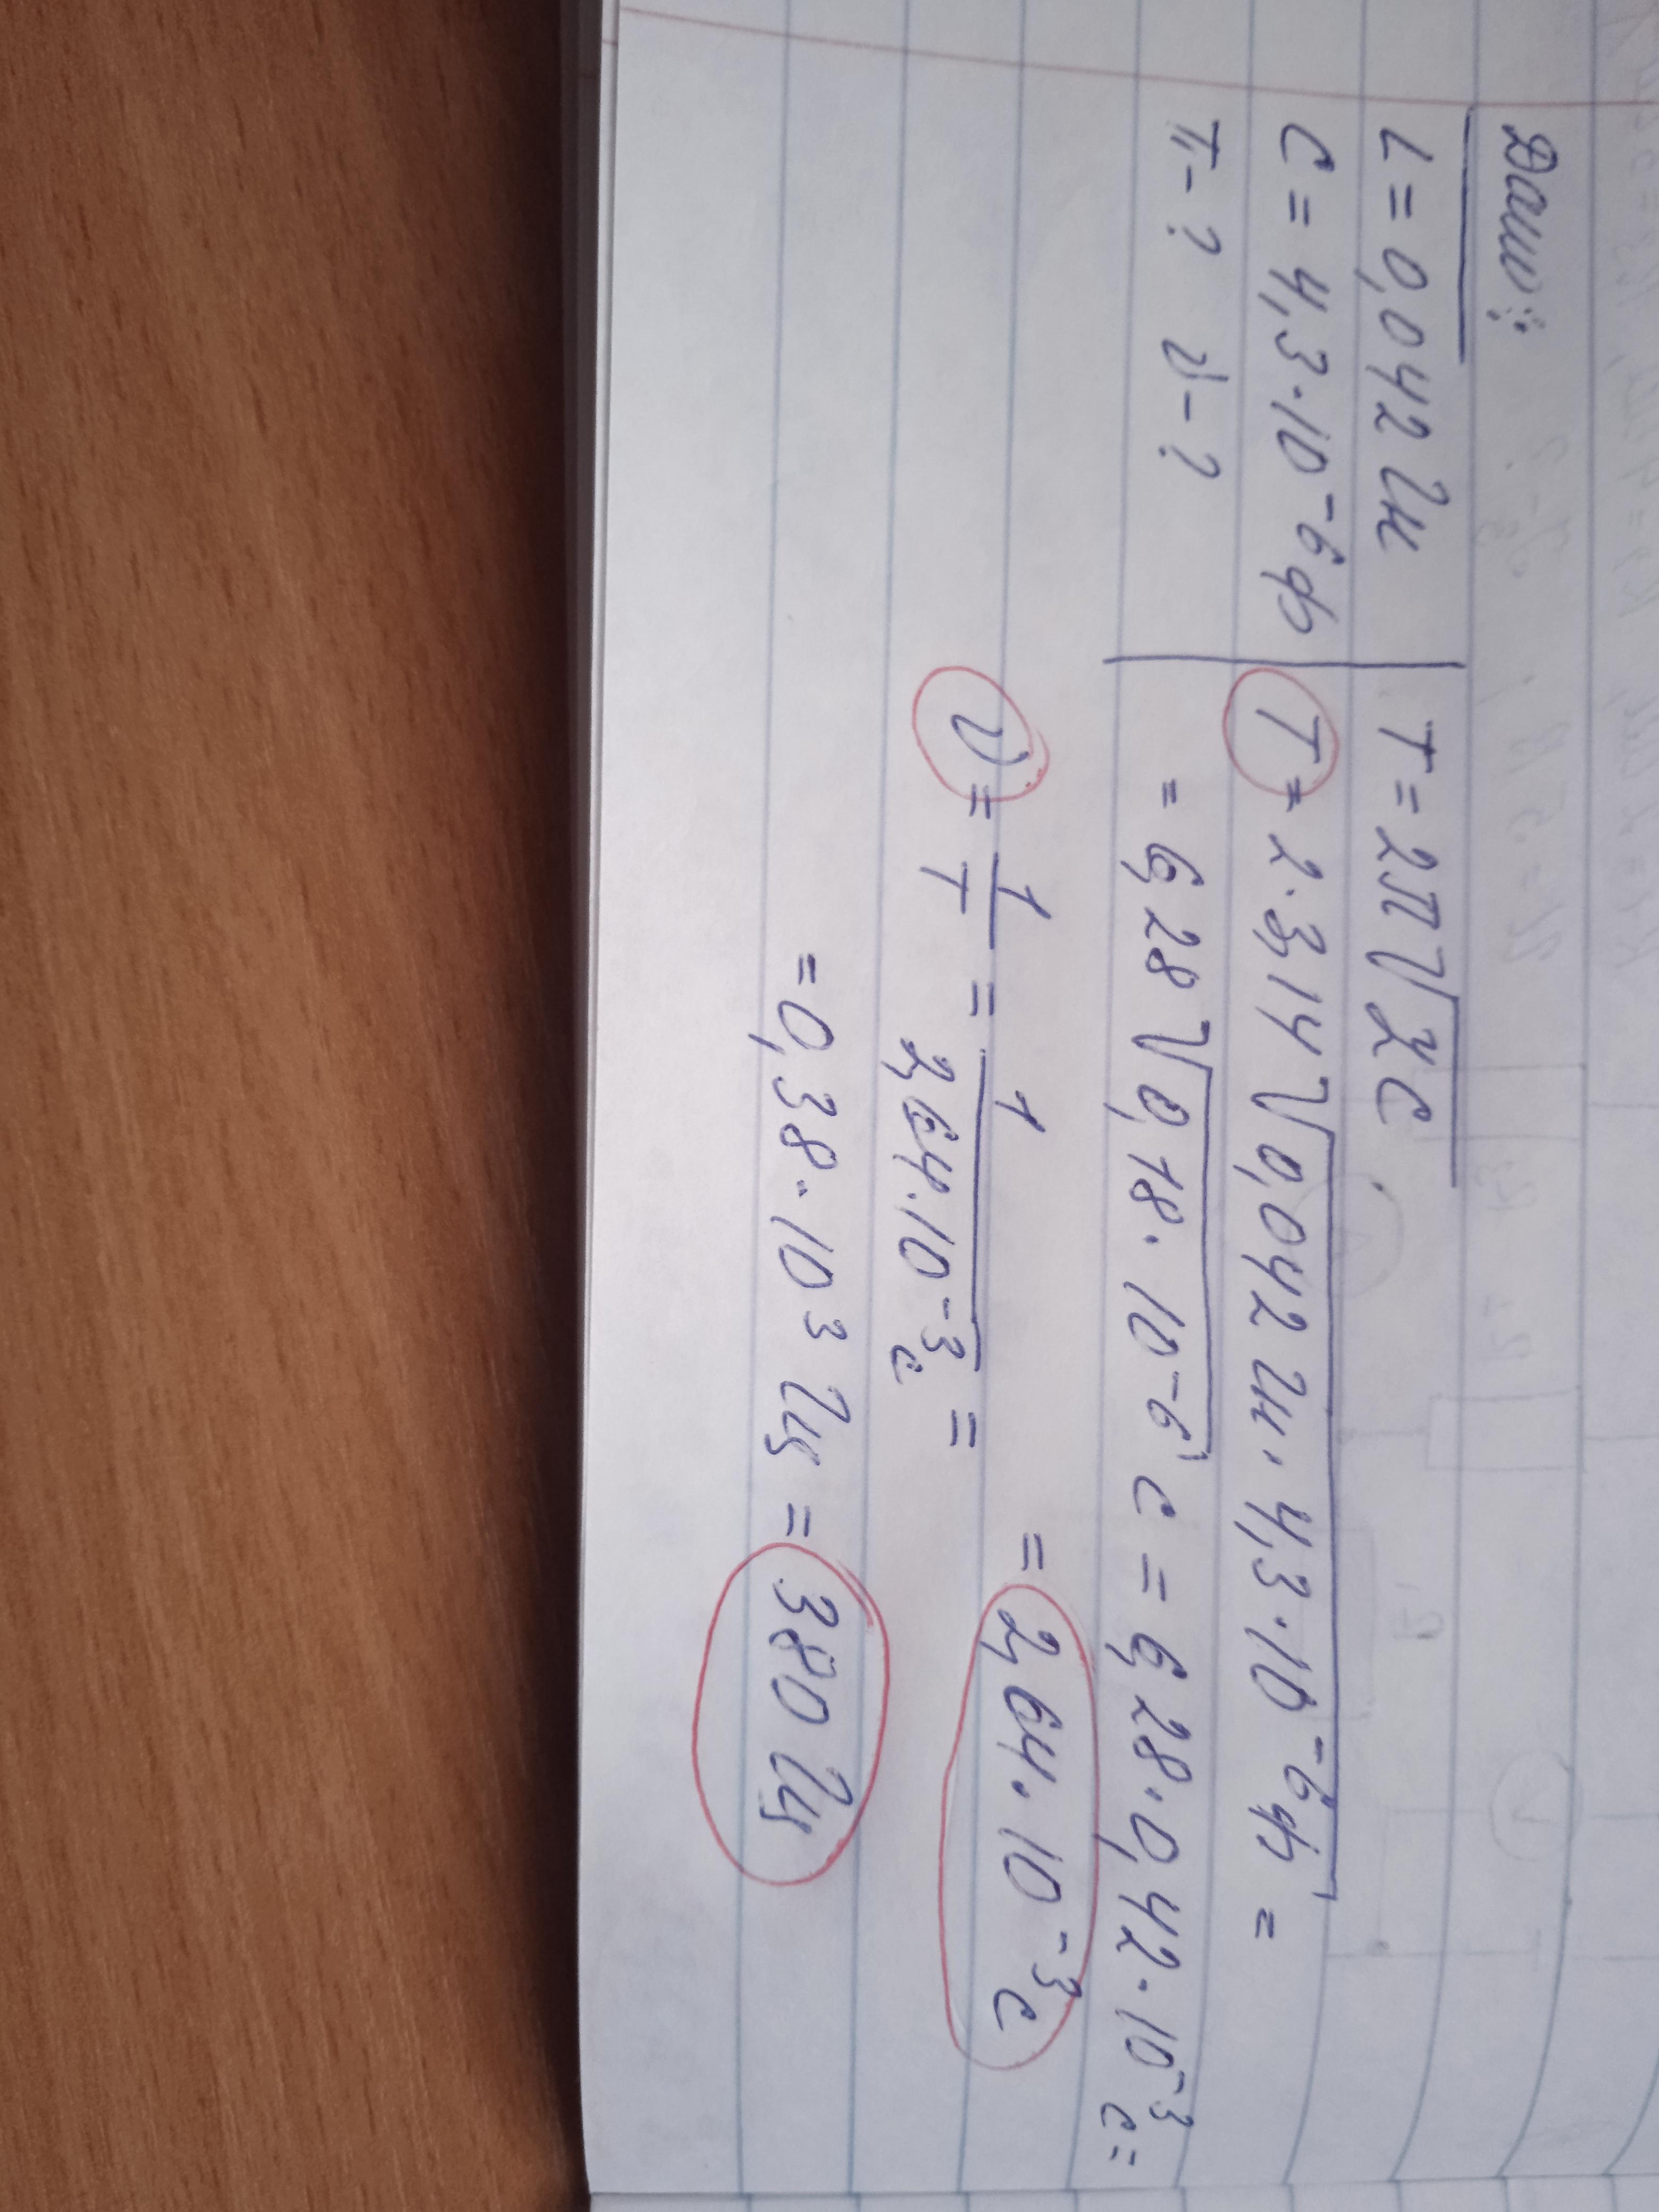 Дано:
L = 0,042 Гн
C = 4,3·10⁻⁶ Ф
T - ? ν - ?
T = 2π√LC
T = 2·3,14√0,042 Гн · 4,3·10⁻⁶ Ф =
= 6,28√0,18·10⁻⁶ с = 6,28·0,42·10⁻³ с =
= 2,64·10⁻³ с
ν = 1/T = 1/2,64·10⁻³ с =
= 0,38·10³ Гц = 380 Гц